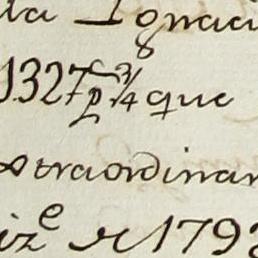 Ignaci
1327p 3/4 que
xtraordinar
ize de 179